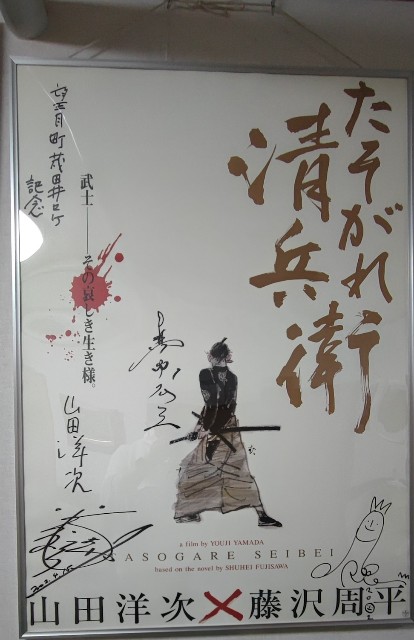 たそがれ
清兵衛
望月町茂田井ロケ
記念
武士――その哀しき生き様。
山田洋次
a film by YAMADA
TASOGARE SEIBEI
based on the novel by SHUHEI FUJISAWA
山田洋次×藤沢周平